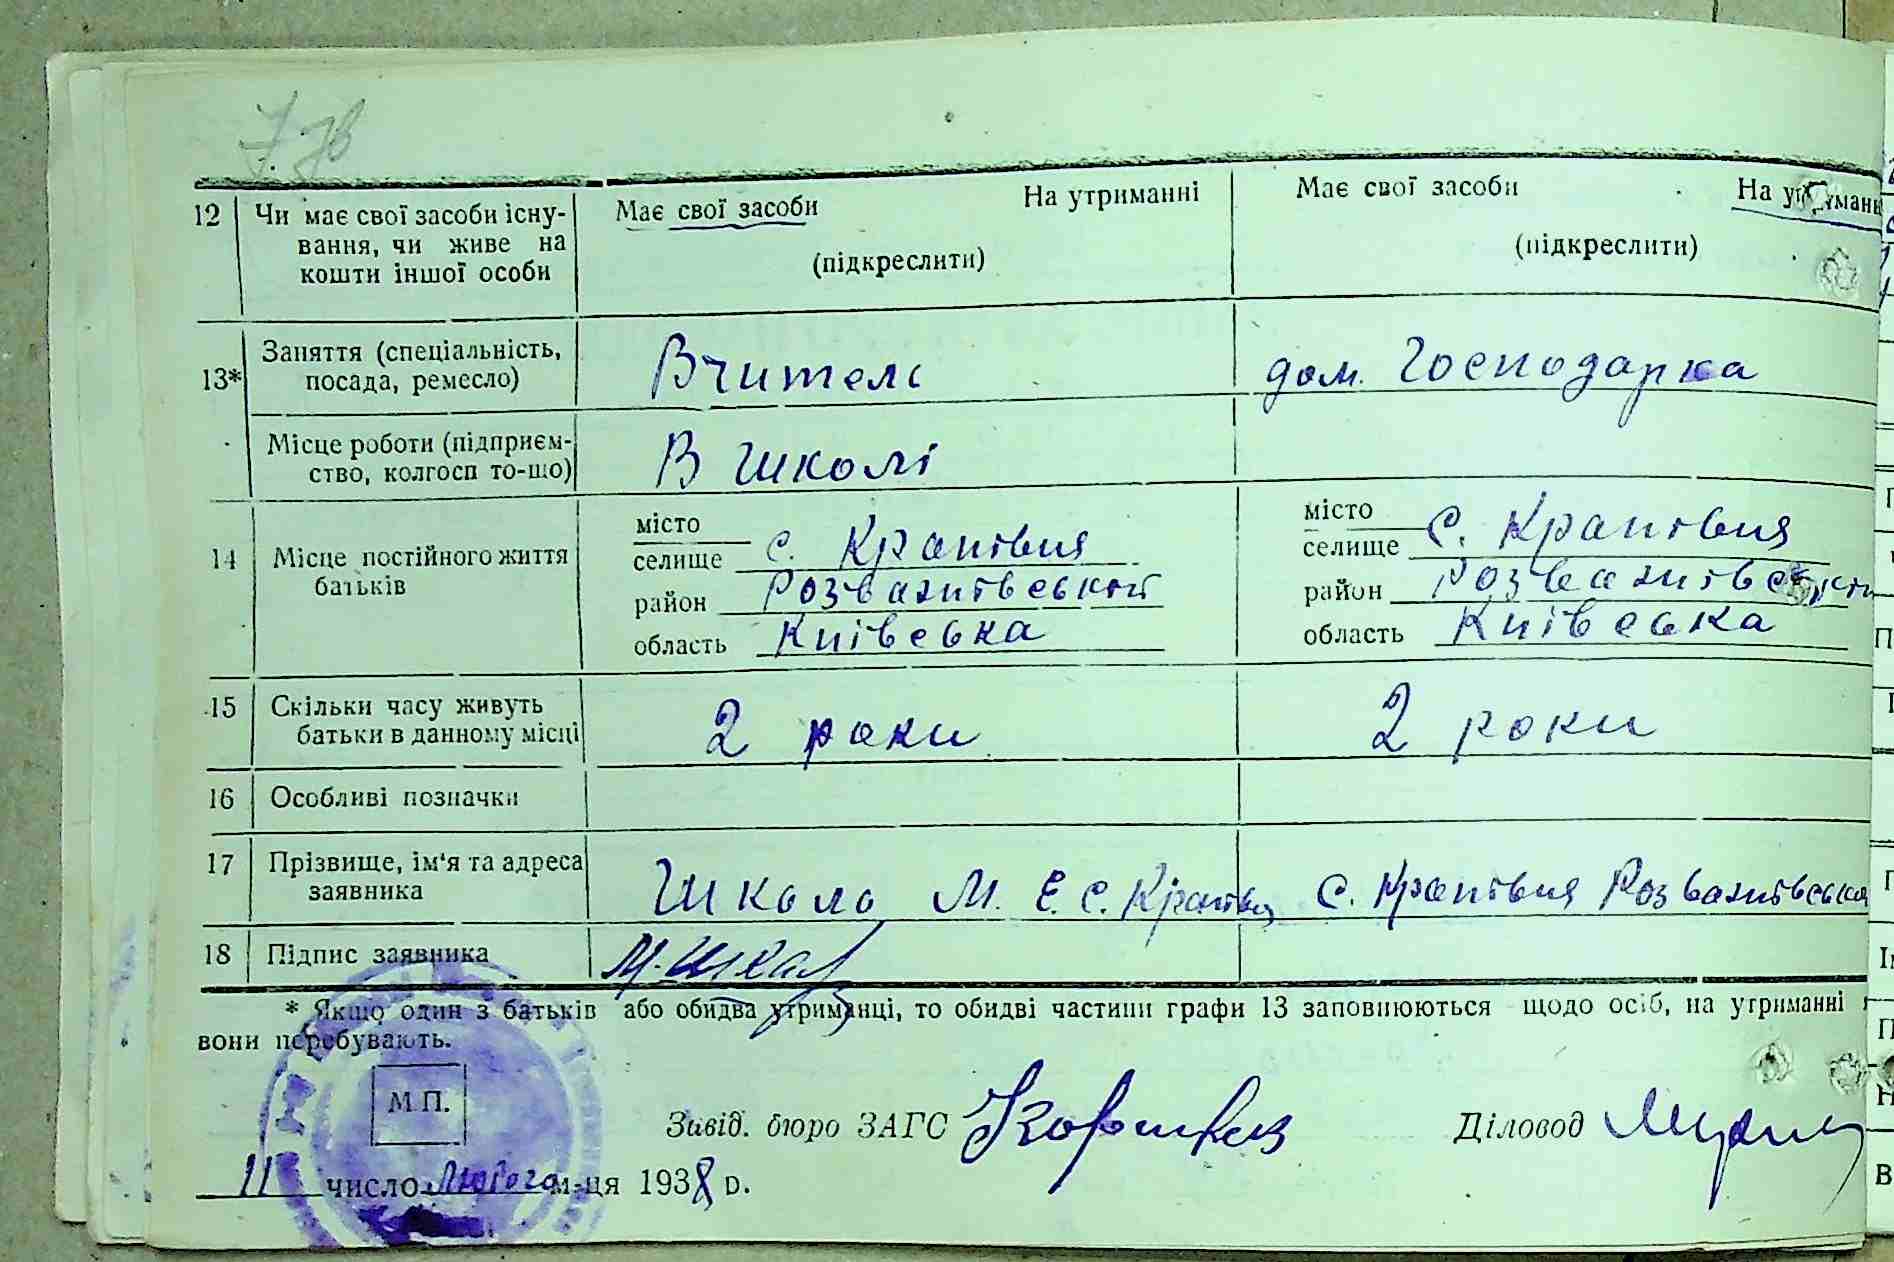 12 Чи має свої засоби існу- Має свої засоби На утриманні Має свої засоби На утриманні
вання, чи живе на
кошти іншої особи (підкреслити) (підкреслити)
13* Заняття (спеціальність,
посада, ремесло) Вчитель дом. Господарка
Місце роботи (підприєм-
ство, колгосп то-що) В школі
14 Місце постійного життя
батьків
місто
селище с. Крапівня
район Розважівський
область Київська
місто
селище С. Крапівня
район Розважівський
область Київська
15 Скільки часу живуть
батьки в данному місці 2 роки 2 роки
16 Особливі позначки
17 Прізвище, ім'я та адреса
заявника Школа М. Е. С. Крапівня С. Крапівня Розважівська
18 Підпис заявника М. Шкал
* Якщо один з батьків або обидва утриманці, то обидві частини графи 13 заповнюються щодо осіб, на утриманні
вони перебувають.
М.П.
Завід. бюро ЗАГС Діловод
11 число Лютого м-ця 1938 р.